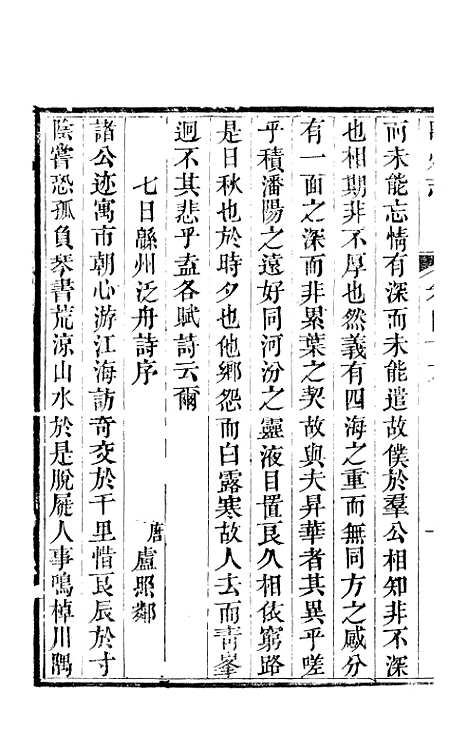 而未能忘情有深而未能遣故僕於羣公相知非不深
也相期非不厚也然義有四海之重而無同方之感分
有一面之深而非累葉之契故與夫昇華者其異乎嗟
乎積潘陽之遠好同河汾之靈液目置良久相依窮路
是日秋也於時夕也他鄉怨而白露寒故人去而靑峯
迥不其悲乎盍各賦詩云爾
七日緜州泛舟詩序
唐盧照鄰
諸公迹寓市朝心游江海訪奇交於千里惜良辰於寸
陰嘗恐孤負琴書荒涼山水於是脫屣人事鳴棹川隅